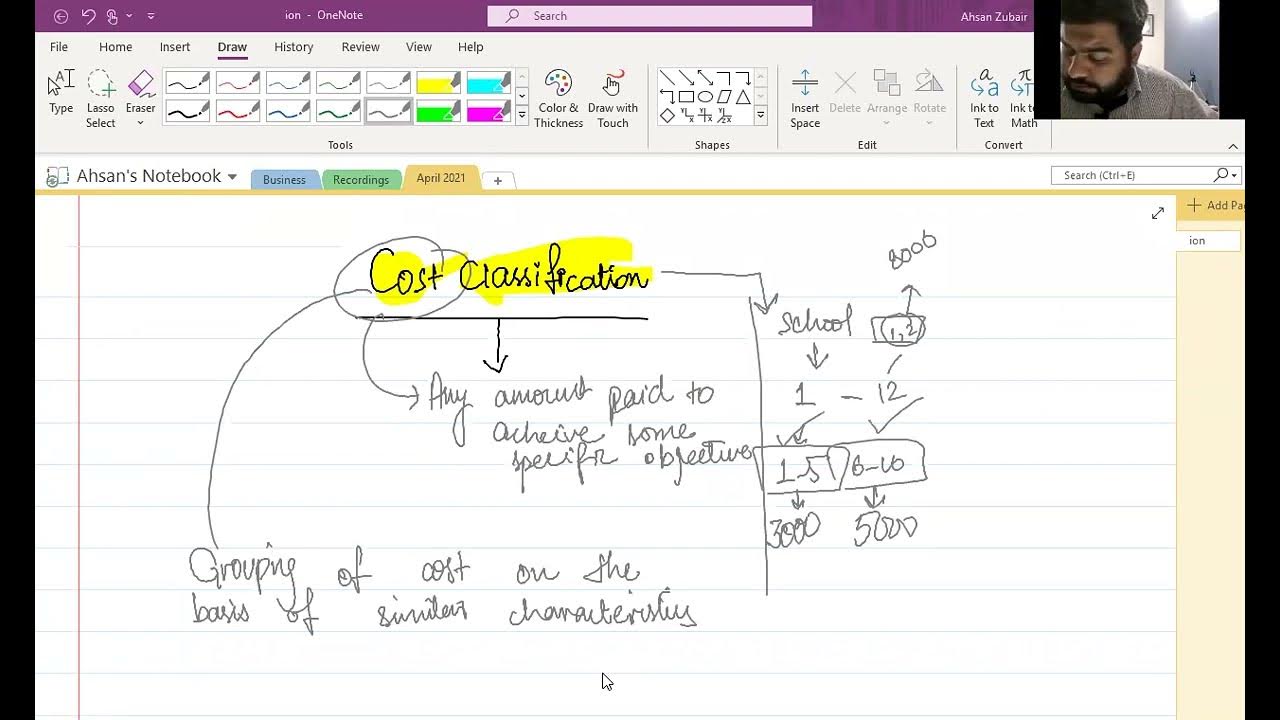 ion - OneNote
Search
Ahsan Zubair
File Home Insert Draw History Review View Help
Type
Lasso Select
Eraser
Color & Thickness
Draw with Touch
Insert Space
Delete
Arrange
Rotate
Ink to Text
Ink to Math
Tools Shapes Edit Convert
Ahsan's Notebook
Business
Recordings
April 2021
+
Search (Ctrl+E)
Add Pa
ion
8000
Cost Classification
School 1,2
1 - 12
Any amount paid to
acheive some
specific objective
1-5 6-10
3000 5000
Grouping of cost on the
basis of similar characteristics